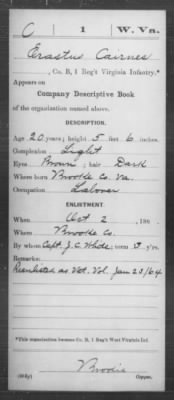 C | 1 | W. Va.
Erastus Cairnes
, Co. B, 1 Reg't Virginia Infantry.*
Appears on
Company Descriptive Book
of the organization named above.
DESCRIPTION.
Age 20 years; height 5 feet 6 inches.
Complexion Light
Eyes Brown; hair Dark
Where born Brooke Co. Va.
Occupation Laborer
ENLISTMENT.
When Oct 2, 186
Where Brooke Co.
By whom Capt. J. C. White; term 3 y'rs.
Remarks:
Reenlisted as Vet. Vol. Jan 23/64
*This organization became Co. B, 1 Reg't West Virginia Inf.
Brodie
Copyist.